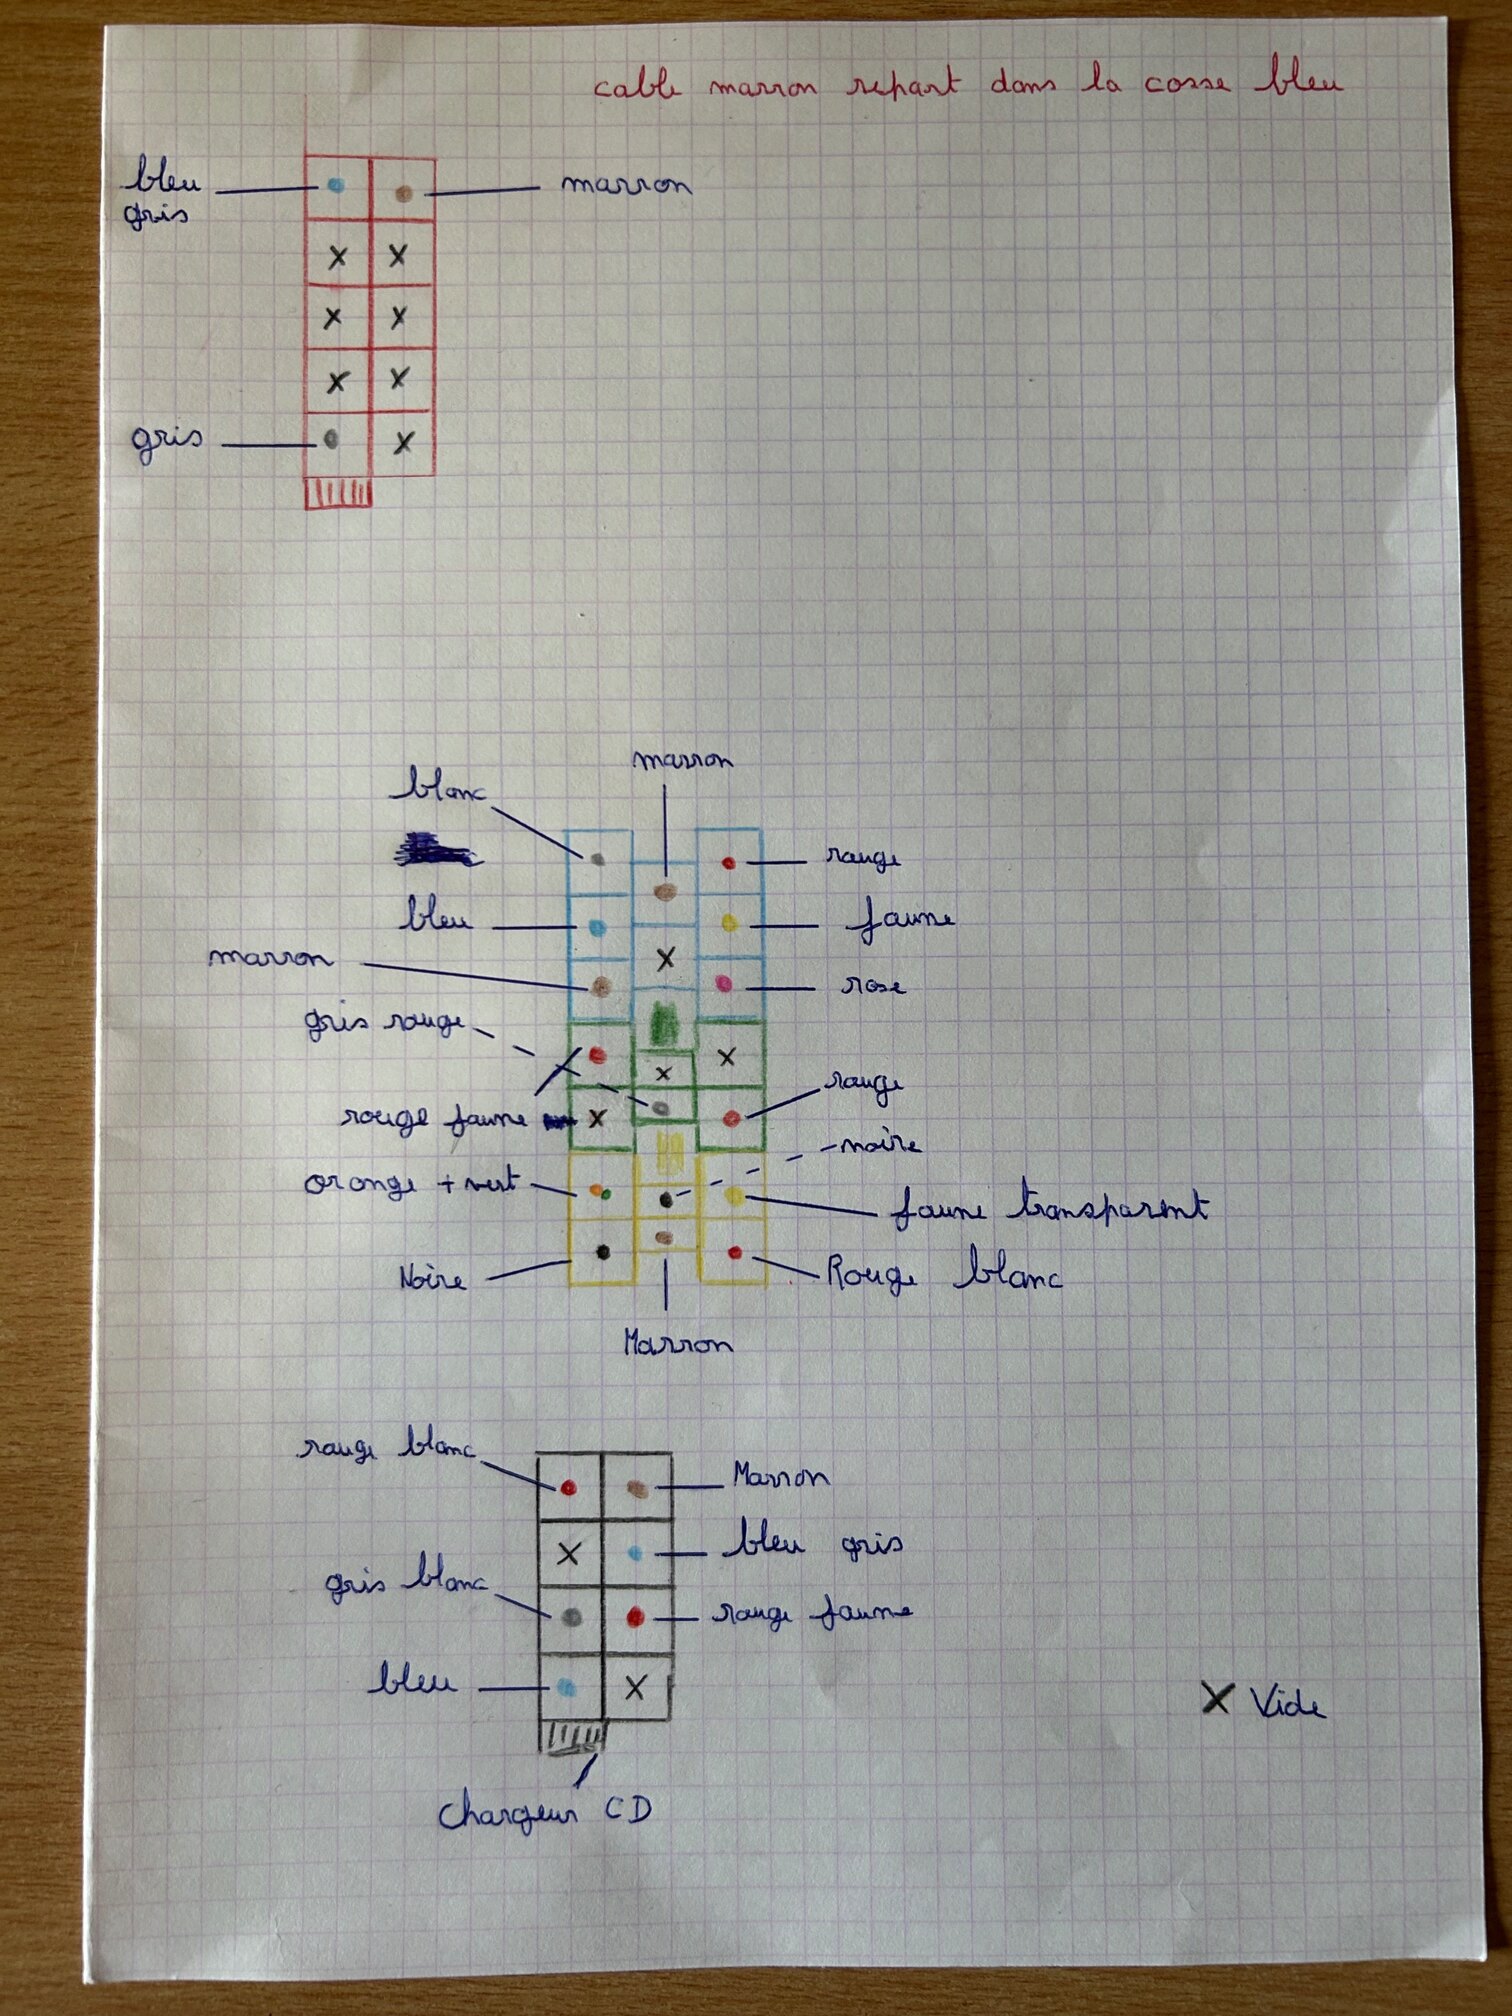 cable marron repart dans la cosse bleu
bleu
gris
marron
X X
X X
X X
gris
X
marron
blanc
rouge
bleu
jaune
marron
X
rose
gris rouge
X
X
rouge
rouge jaune
X
noire
orange + vert
jaune transparent
Noire
Rouge blanc
Marron
rouge blanc
Marron
X
bleu gris
gris blanc
rouge jaune
bleu
X
X Vide
Chargeur CD